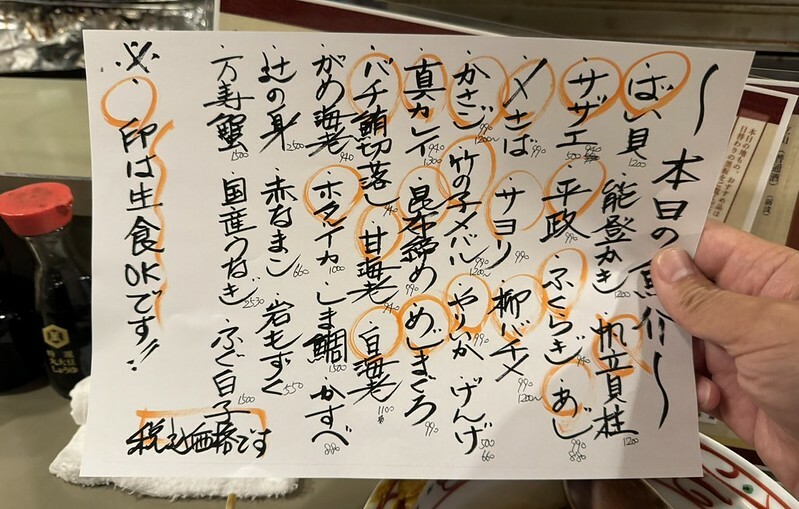 〜本日の魚介〜
・ばい貝 1200 ・能登かき 1200 ・帆立貝柱 1200
・サザエ ・平政 990 ・ふくらぎ ・あじ 990 880
・〆さば 990 ・サヨリ 990 ・柳バチメ 990 1200〜
・かさご 990 1200〜 ・竹の子メバル 990 1200〜 ・やりいか 990 ・げんげ 500 660
・真カレイ 940 1300 ・昆布締め 990 ・めじまぐろ 990
・バチ鮪切落し 940 ・甘海老 940 ・白海老 1100
・がめ海老 940 ・ホタルイカ 1000 ・しま鯛 1500 ・かすべ 880
・辻の身 2500 ・赤なまこ 660 ・岩もずく 550
・万寿蟹 1500 ・国産うなぎ 2530 ・ふぐ白子 1500
※
印は生食OKです!!
税込価格です
本日の地もの、おすすめ品は